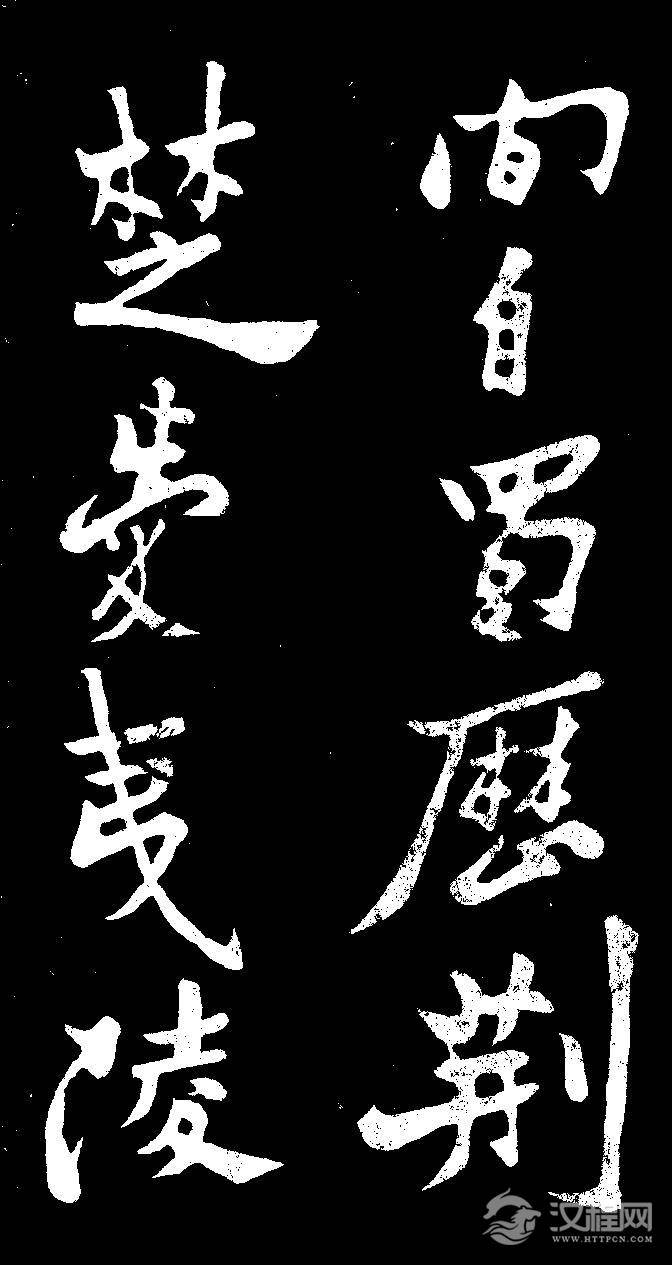 間自蜀歷荆
楚愛夷陵
汉程网
WWW.HTTPCN.COM